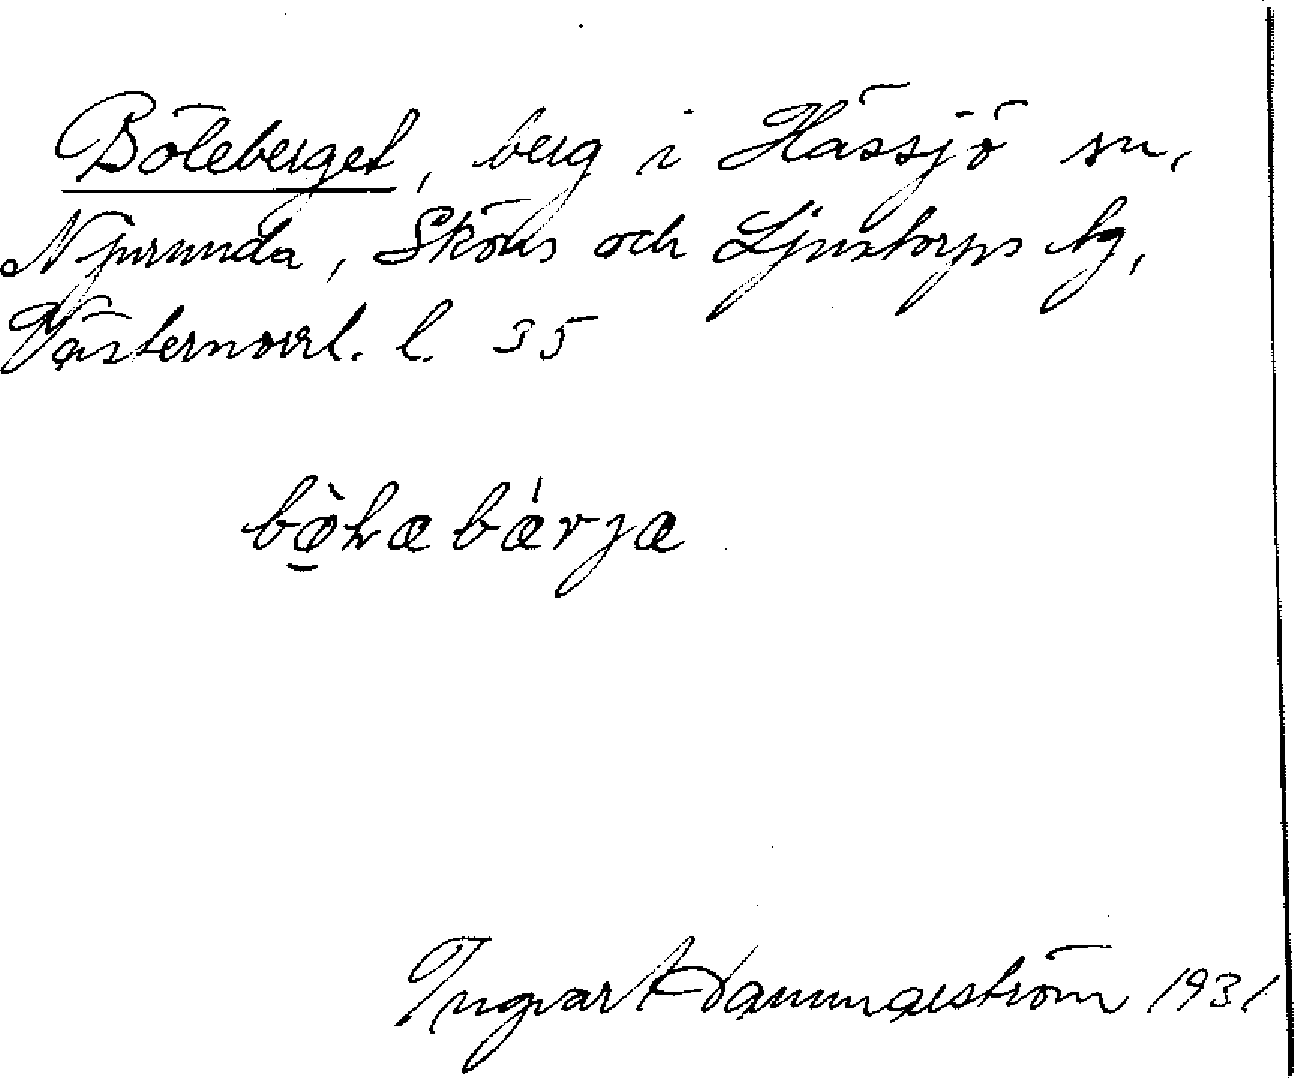 Böleberget, berg i Hässjö sn,
Njurunda, Sköns och Ljustorps tg,
Västernorrl. l. 35
bø̀læbǽrjæ
Ingvar Hammarström 1931